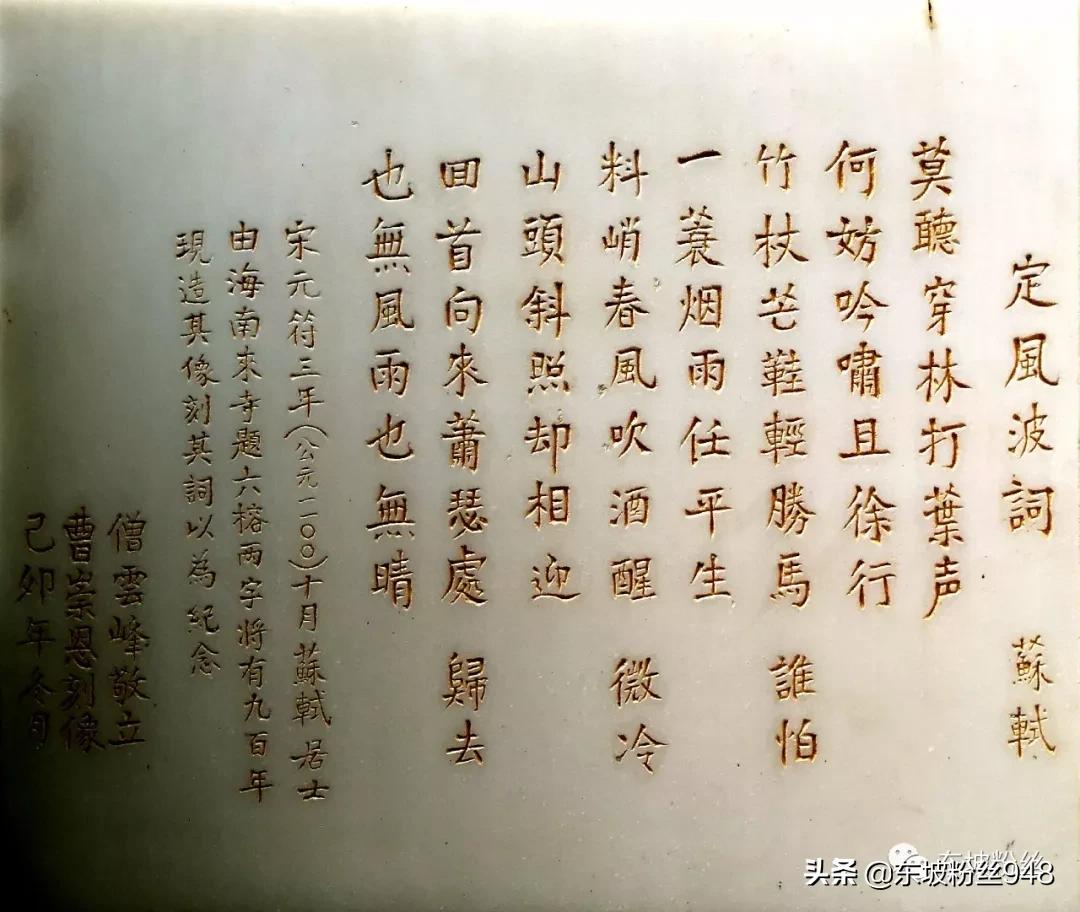 定風波詞 蘇軾
莫聽穿林打葉声
何妨吟嘯且徐行
竹杖芒鞋輕勝馬 誰怕
一蓑烟雨任平生
料峭春風吹酒醒 微冷
山頭斜照却相迎
回首向來蕭瑟處 歸去
也無風雨也無晴
宋元符三年(公元一一〇〇)十月蘇軾居士
由海南來寺題六榕兩字將有九百年
現造其像刻其詞以為紀念
僧雲峰敬立
曹崇恩刻像
己卯年冬月
东坡粉丝
头条 @东坡粉丝948